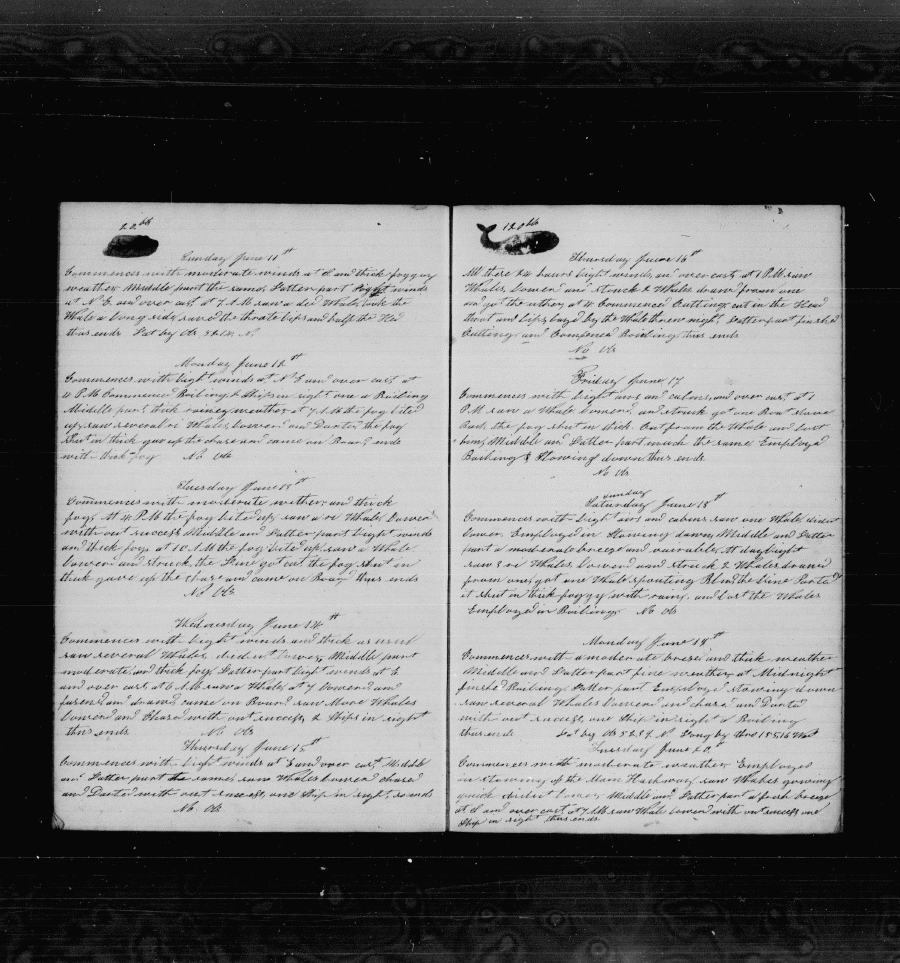 20 bb
Sunday June 11th
Commences with moderate winds at E and thick foggy
weather Middle part the same, Latter part light winds
at N E and over cast at 7 A.M saw a ded Whale, took the
Whale a long side, saved the throte lips and half the Hed
thus ends Lat by Ob
Monday June 12th
Commences with light winds at N E and over cast, at
4 P.M Commenced Boiling 2 Ships in sight one a Boiling
Middle part thick rainey weather at 7 A.M the fog lited
up, saw several Whales Lowered and Darted, the fog
Shut in thick gave up the chase and came on Board ends
with thick fog No Ob
Tuesday June 13th
Commences with moderate wether, and thick
fog, At 4 P.M the fog lited up, saw Whales Lowered
with out success Middle and Latter part light winds
and thick fog, at 10 A.M the fog lited up, saw a Whale
Lowered and struck, the Line got cut, the fog shut in
thick gave up the chase and came on Board thus ends
No Ob
Wednesday June 14th
Commences with light winds and thick as usul
saw several Whales, died int Lower, Middle part
moderate, and thick fog, Latter part light winds at E
and over cast, at 6 A.M saw a Whale, at 7 Lowered and
fasened and drawed came on Board saw More Whales
Lowered and Chased with out success, 2 Ships in sight
thus ends No Ob
Thursday June 15th
Commences with light winds at E and over cast Middle
and Latter part the same, saw Whales Lowered chased
and Darted with out success, one Ship in sight, so ends
No Ob
120 bb
Thursday June 16th
All these 24 hours light winds, and over cast, at 1 P.M saw
Whales Lowered and struck 2 Whales drawed from one
and got the other, at 4 Commenced Cutting, cut in the Head
throt and lips, layed by the Whale threw night, Latter part finished
Cutting and Commenced Boiling thus ends
No Ob
Friday June 17
Commences with light airs and calms, and over cast at 1
P.M saw a Whale Lowered and struck got one Boat stove
Back the fog shut in thick Cut from the Whale and lost
him, Middle and Latter part much the same Employed
Boiling & Stowing down thus ends
No Ob
Sunday
Saturday June 18th
Commences with light airs and calms saw one Whale, dident
Lower, Employed in Stowing down, Middle and Latter
part a moderate breeze and varrable, At daylight
saw Whales Lowered and struck 2 Whales drawed
from one, got one Whale spouting Blud the Line Parted
it shut in thick foggy with rain, and lost the Whales
Employed in Boiling No Ob
Monday June 19th
Commences with a moderate breese and thick weather
Middle and Latter part fine weather, at Midnight
finished Boiling Latter part Employed stowing down
saw several Whales Lowered and chased and Darted
with out success, one Ship in sight a Boiling
thus ends Lat by Ob Long by
Tuesday June 20th
Commences with moderate weather Employed
in stowing of the Main Hachway, saw Whales gowing
quick dident Lower, Middle and Latter part a fresh breeze
at E and over cast, at 7 A.M saw Whale Lowered with out success one
Ship in sight thus ends